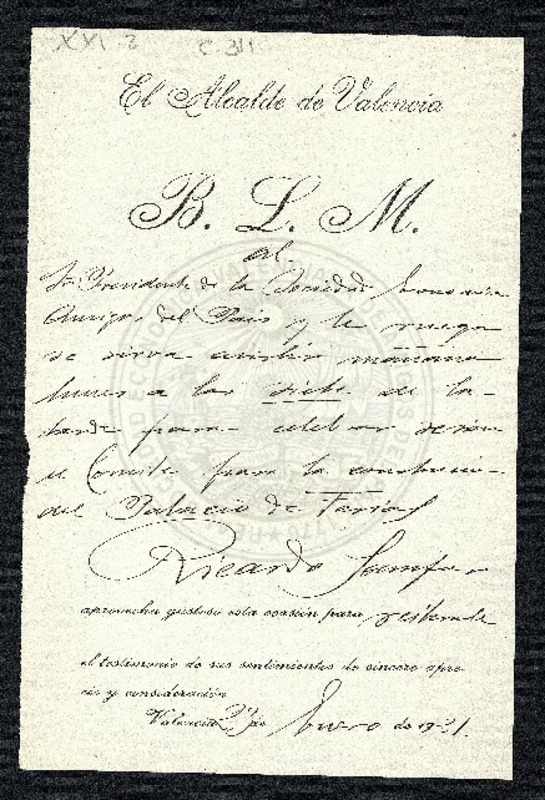 XXI-2 C-311
El Alcalde de Valencia
B. L. M.
al
Sr. Presidente de la Sociedad Económica
Amigos del País y le ruega
se sirva asistir mañana
lunes a las siete de la
tarde para celebrar sesión
el Comité para la construcción
del Palacio de Ferias
Ricardo Samper
aprovecha gustoso esta ocasión para reiterarle
el testimonio de sus sentimientos de sincero apre-
cio y consideración
Valencia de Enero de 1921.